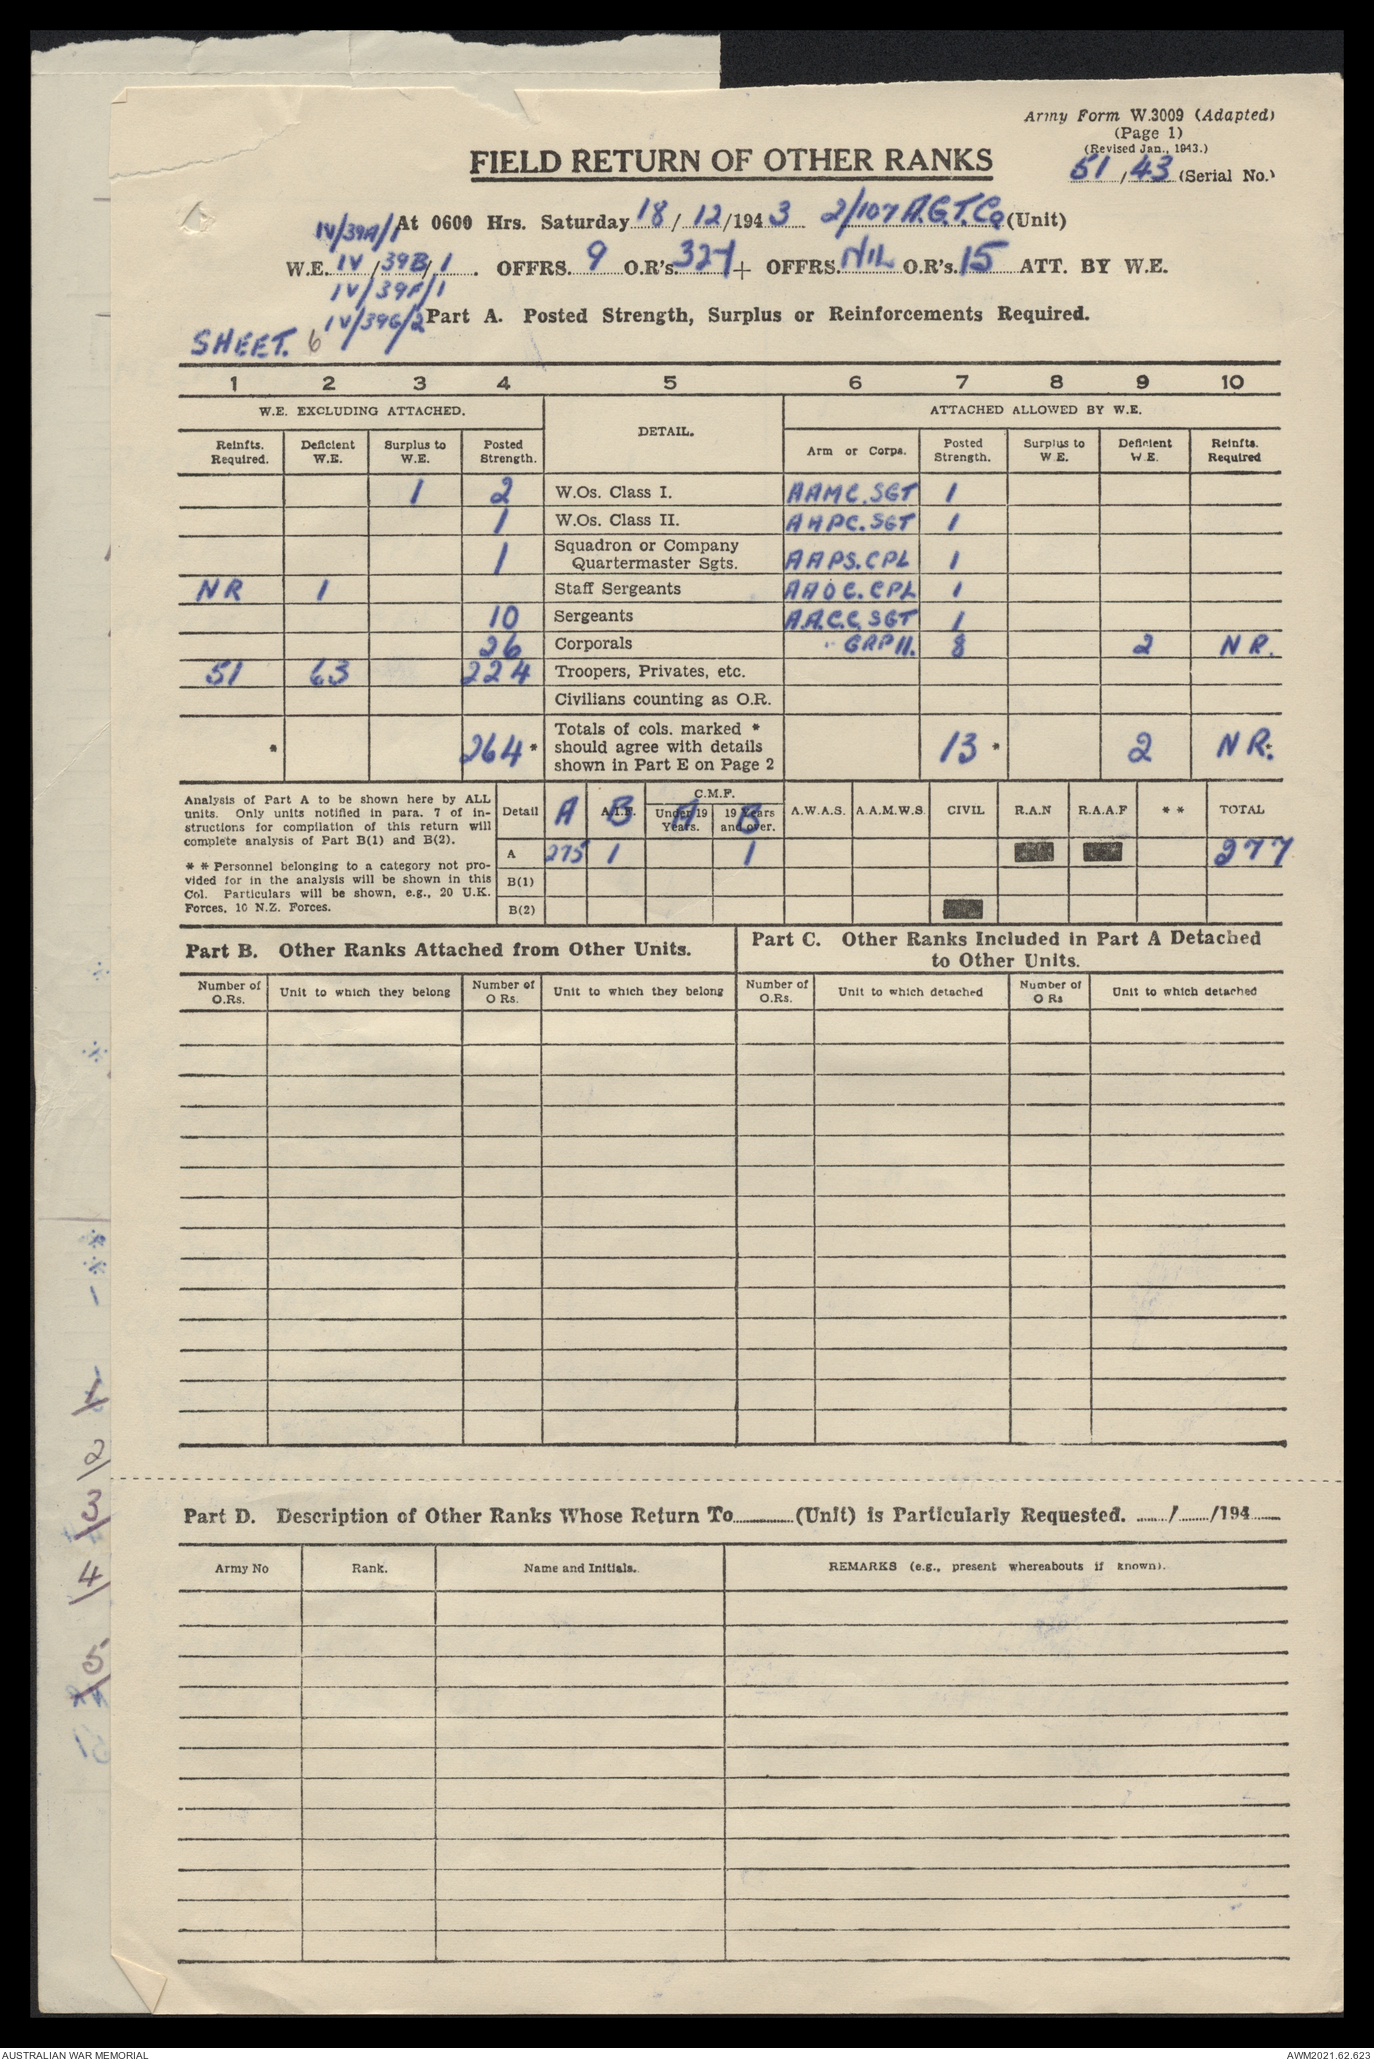 Army Form W.3009 (Adapted)
(Page 1)
(Revised Jan., 1943.)
FIELD RETURN OF OTHER RANKS
51/43 (Serial No.)
IV/39A/1 At 0600 Hrs. Saturday 18/12/1943 2/107 A.G.T. Co (Unit)
W.E. IV/39B/1. OFFRS. 9 O.R's. 327+ OFFRS. NIL O.R's. 15 ATT. BY W.E.
IV/39F/1
IV/39G/2 Part A. Posted Strength, Surplus or Reinforcements Required.
SHEET. 6
1 2 3 4 5 6 7 8 9 10
W.E. EXCLUDING ATTACHED. DETAIL. ATTACHED ALLOWED BY W.E.
Reinfts. Required. Deficient W.E. Surplus to W.E. Posted Strength. Arm or Corps. Posted Strength. Surplus to W.E. Deficient W.E. Reinfts. Required
1 2 W.Os. Class I. AAMC. SGT 1
1 W.Os. Class II. AAPC. SGT 1
1 Squadron or Company Quartermaster Sgts. AAPS. CPL 1
NR 1 Staff Sergeants AAOC. CPL 1
10 Sergeants A.A.C.C. SGT 1
26 Corporals " GRP II. 8 2 NR.
51 63 224 Troopers, Privates, etc.
Civilians counting as O.R.
* 264 * Totals of cols. marked * should agree with details shown in Part E on Page 2 13 * 2 NR. *
Analysis of Part A to be shown here by ALL
units. Only units notified in para. 7 of in-
structions for compilation of this return will
complete analysis of Part B(1) and B(2).
* * Personnel belonging to a category not pro-
vided for in the analysis will be shown in this
Col. Particulars will be shown, e.g., 20 U.K.
Forces, 10 N.Z. Forces.
C.M.F.
Detail A A.I.F. B Under 19 Years. A 19 Years and over. B A.W.A.S. A.A.M.W.S. CIVIL R.A.N R.A.A.F * * TOTAL
A 275 1 1 277
B(1)
B(2)
Part B. Other Ranks Attached from Other Units.
Part C. Other Ranks Included in Part A Detached
to Other Units.
Number of O.Rs. Unit to which they belong Number of O Rs. Unit to which they belong Number of O.Rs. Unit to which detached Number of O Rs Unit to which detached
1/
2/
3/
4/
5/
Part D. Description of Other Ranks Whose Return To (Unit) is Particularly Requested. / /194
Army No Rank. Name and Initials. REMARKS (e.g., present whereabouts if known).
AUSTRALIAN WAR MEMORIAL AWM2021.62.623